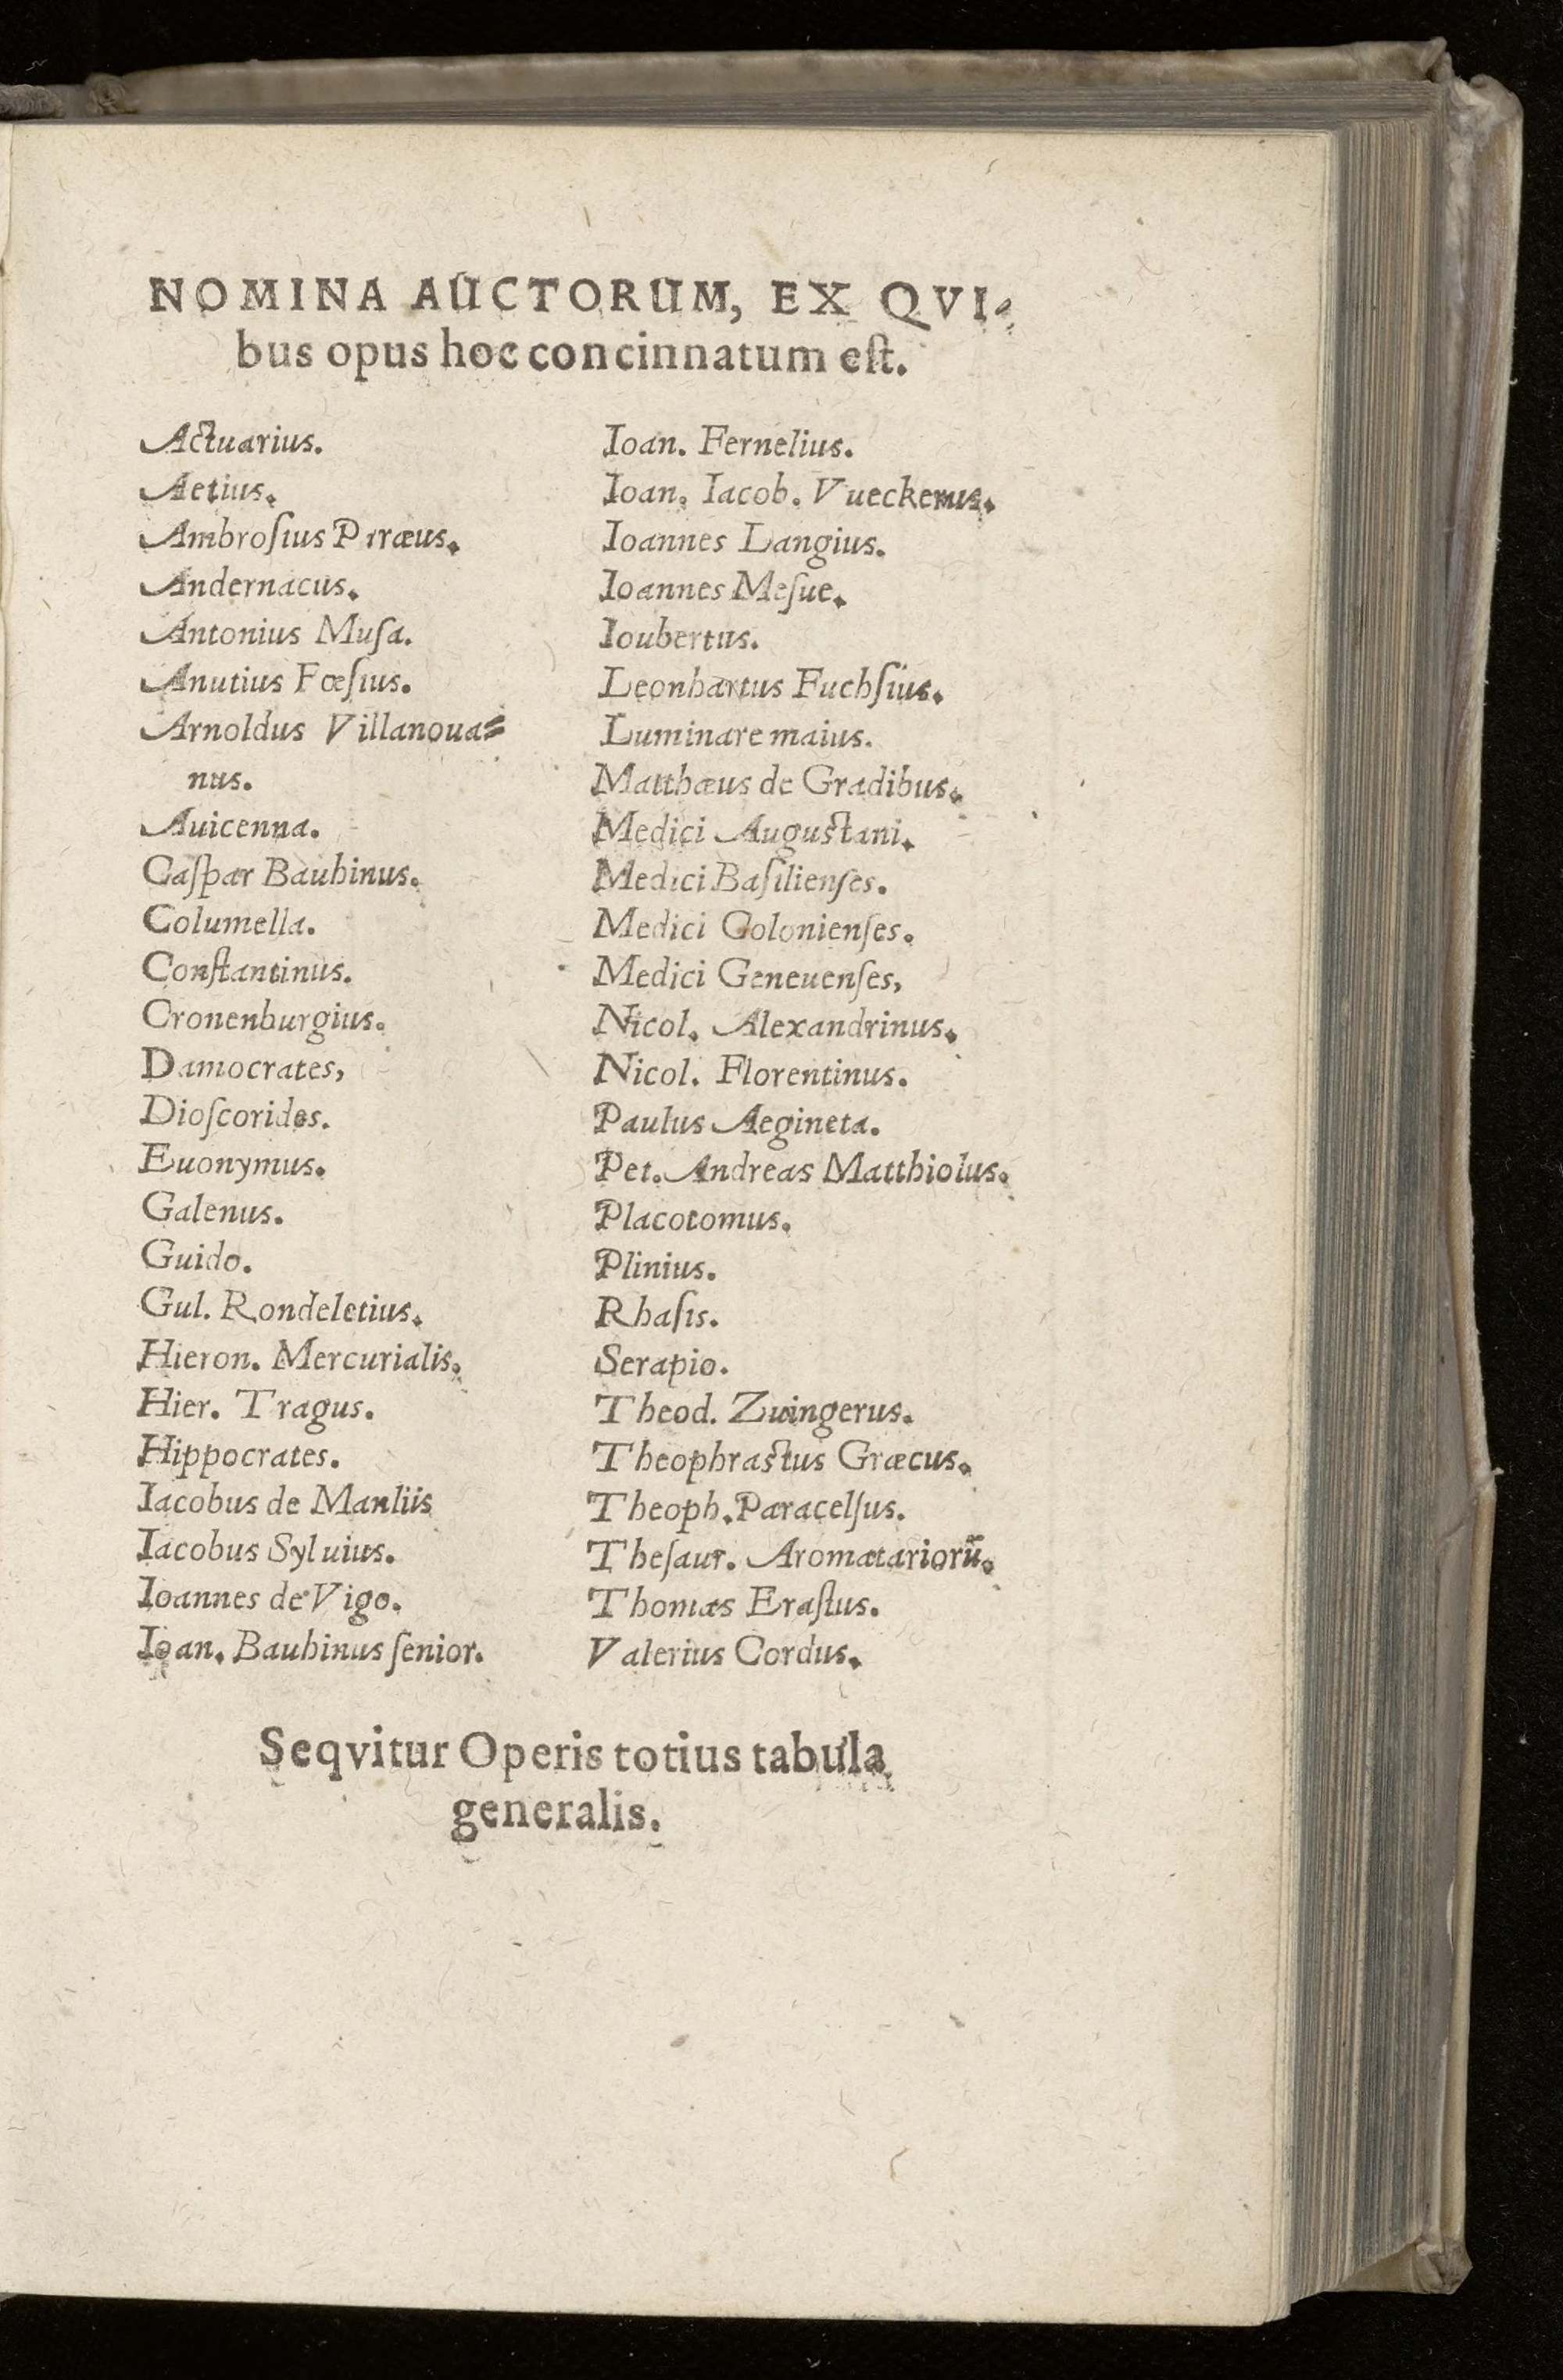 NOMINA AUCTORUM, EX QVI-
bus opus hoc concinnatum eſt.
Actuarius.
Aetius.
Ambroſius Paræus.
Andernacus.
Antonius Muſa.
Anutius Fœſius.
Arnoldus Villanoua-
nus.
Auicenna.
Caſpar Bauhinus.
Columella.
Conſtantinus.
Cronenburgius.
Damocrates,
Dioſcorides.
Euonymus.
Galenus.
Guido.
Gul. Rondeletius.
Hieron. Mercurialis.
Hier. Tragus.
Hippocrates.
Iacobus de Manliis
Iacobus Syluius.
Ioannes de Vigo.
Ioan. Bauhinus ſenior.
Ioan. Fernelius.
Ioan. Iacob. Vueckerus.
Ioannes Langius.
Ioannes Meſue.
Ioubertus.
Leonhartus Fuchſius.
Luminare maius.
Matthæus de Gradibus.
Medici Auguſtani.
Medici Baſilienſes.
Medici Colonienſes.
Medici Geneuenſes,
Nicol. Alexandrinus.
Nicol. Florentinus.
Paulus Aegineta.
Pet. Andreas Matthiolus.
Placotomus.
Plinius.
Rhaſis.
Serapio.
Theod. Zuingerus.
Theophraſtus Græcus.
Theoph. Paracelſus.
Theſaur. Aromatariorū.
Thomas Eraſtus.
Valerius Cordus.
Seqvitur Operis totius tabula
generalis.